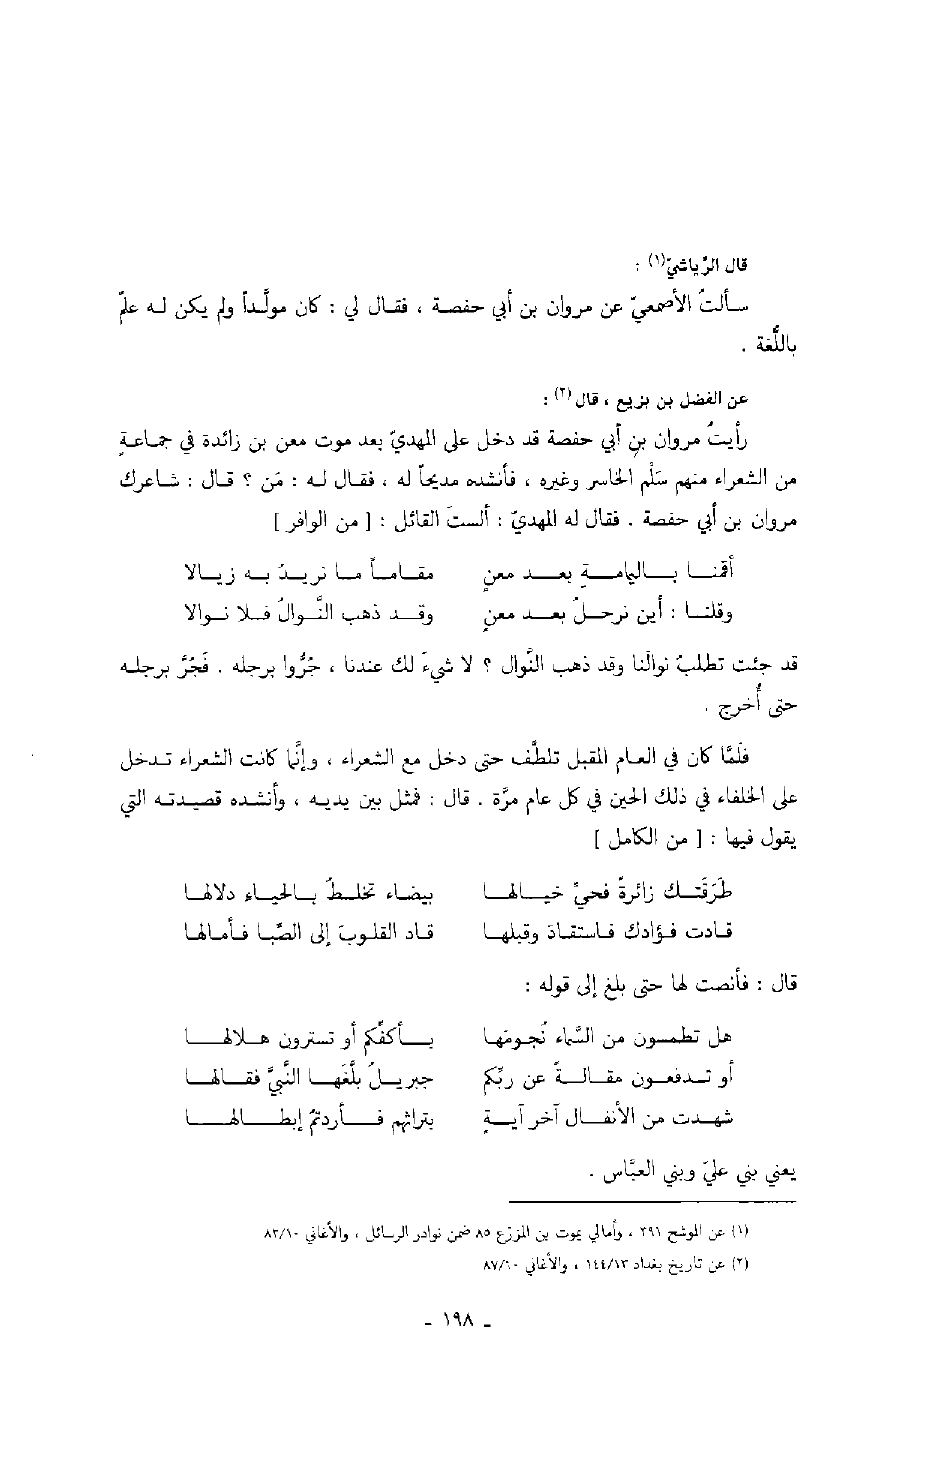 قال الرِّياشيّ(١) :
سألتُ الأصمعيّ عن مروان بن أبي حفصة ، فقال لي : كان مولَّداً ولم يكن له علمٌ
باللُّغة .
عن الفضل بن بزيع ، قال(٢) :
رأيتُ مروان بن أبي حفصة قد دخل على المهديّ بعد موت معن بن زائدة في جماعةٍ
من الشعراء منهم سَلْم الخاسر وغيره ، فأنشده مديحاً له ، فقال له : مَن ؟ قال : شاعرك
مروان بن أبي حفصة . فقال له المهديّ : ألستَ القائل : [ من الوافر ]
أقمنا باليمامةِ بعد معنٍ مقاماً ما نريدُ به زيالا
وقلنا : أين نرحلُ بعد معنٍ وقد ذهب النَّوالُ فلا نوالا
قد جئت تطلبُ نوالَنا وقد ذهب النَّوال ؟ لا شيءَ لك عندنا ، جُرُّوا برجله . فَجُرَّ برجله
حتى أُخرج .
فلَمَّا كان في العام المقبل تلطَّف حتى دخل مع الشعراء ، وإنَّما كانت الشعراء تدخل
على الخلفاء في ذلك الحين في كل عام مرَّة . قال : فمثل بين يديه ، وأنشده قصيدته التي
يقول فيها : [ من الكامل ]
طَرَقَتْك زائرةٌ فحيِّ خيالها بيضاء تخلطُ بالحياء دلالها
قادت فؤادك فاستقاد وقبلها قاد القلوبَ إلى الصِّبا فأمالها
قال : فأنصت لها حتى بلغ إلى قوله :
هل تطمسون من السَّماء نُجومَها بأكفِّكم أو تسترون هلالها
أو تدفعون مقالةً عن ربِّكم جبريلُ بلَّغها النَّبيَّ فقالها
شهدت من الأنفال آخر آيةٍ بتراثهم فأردتمُ إبطالها
يعني بني عليّ وبني العبَّاس .
(١) عن الموشح ٣٩١ ، وأمالي يموت بن المزرَّع ٨٥ ضمن نوادر الرسائل ، والأغاني ٨٣/١٠
(٢) عن تاريخ بغداد ١٤٤/١٣ ، والأغاني ٨٧/١٠
ـ ١٩٨ ـ